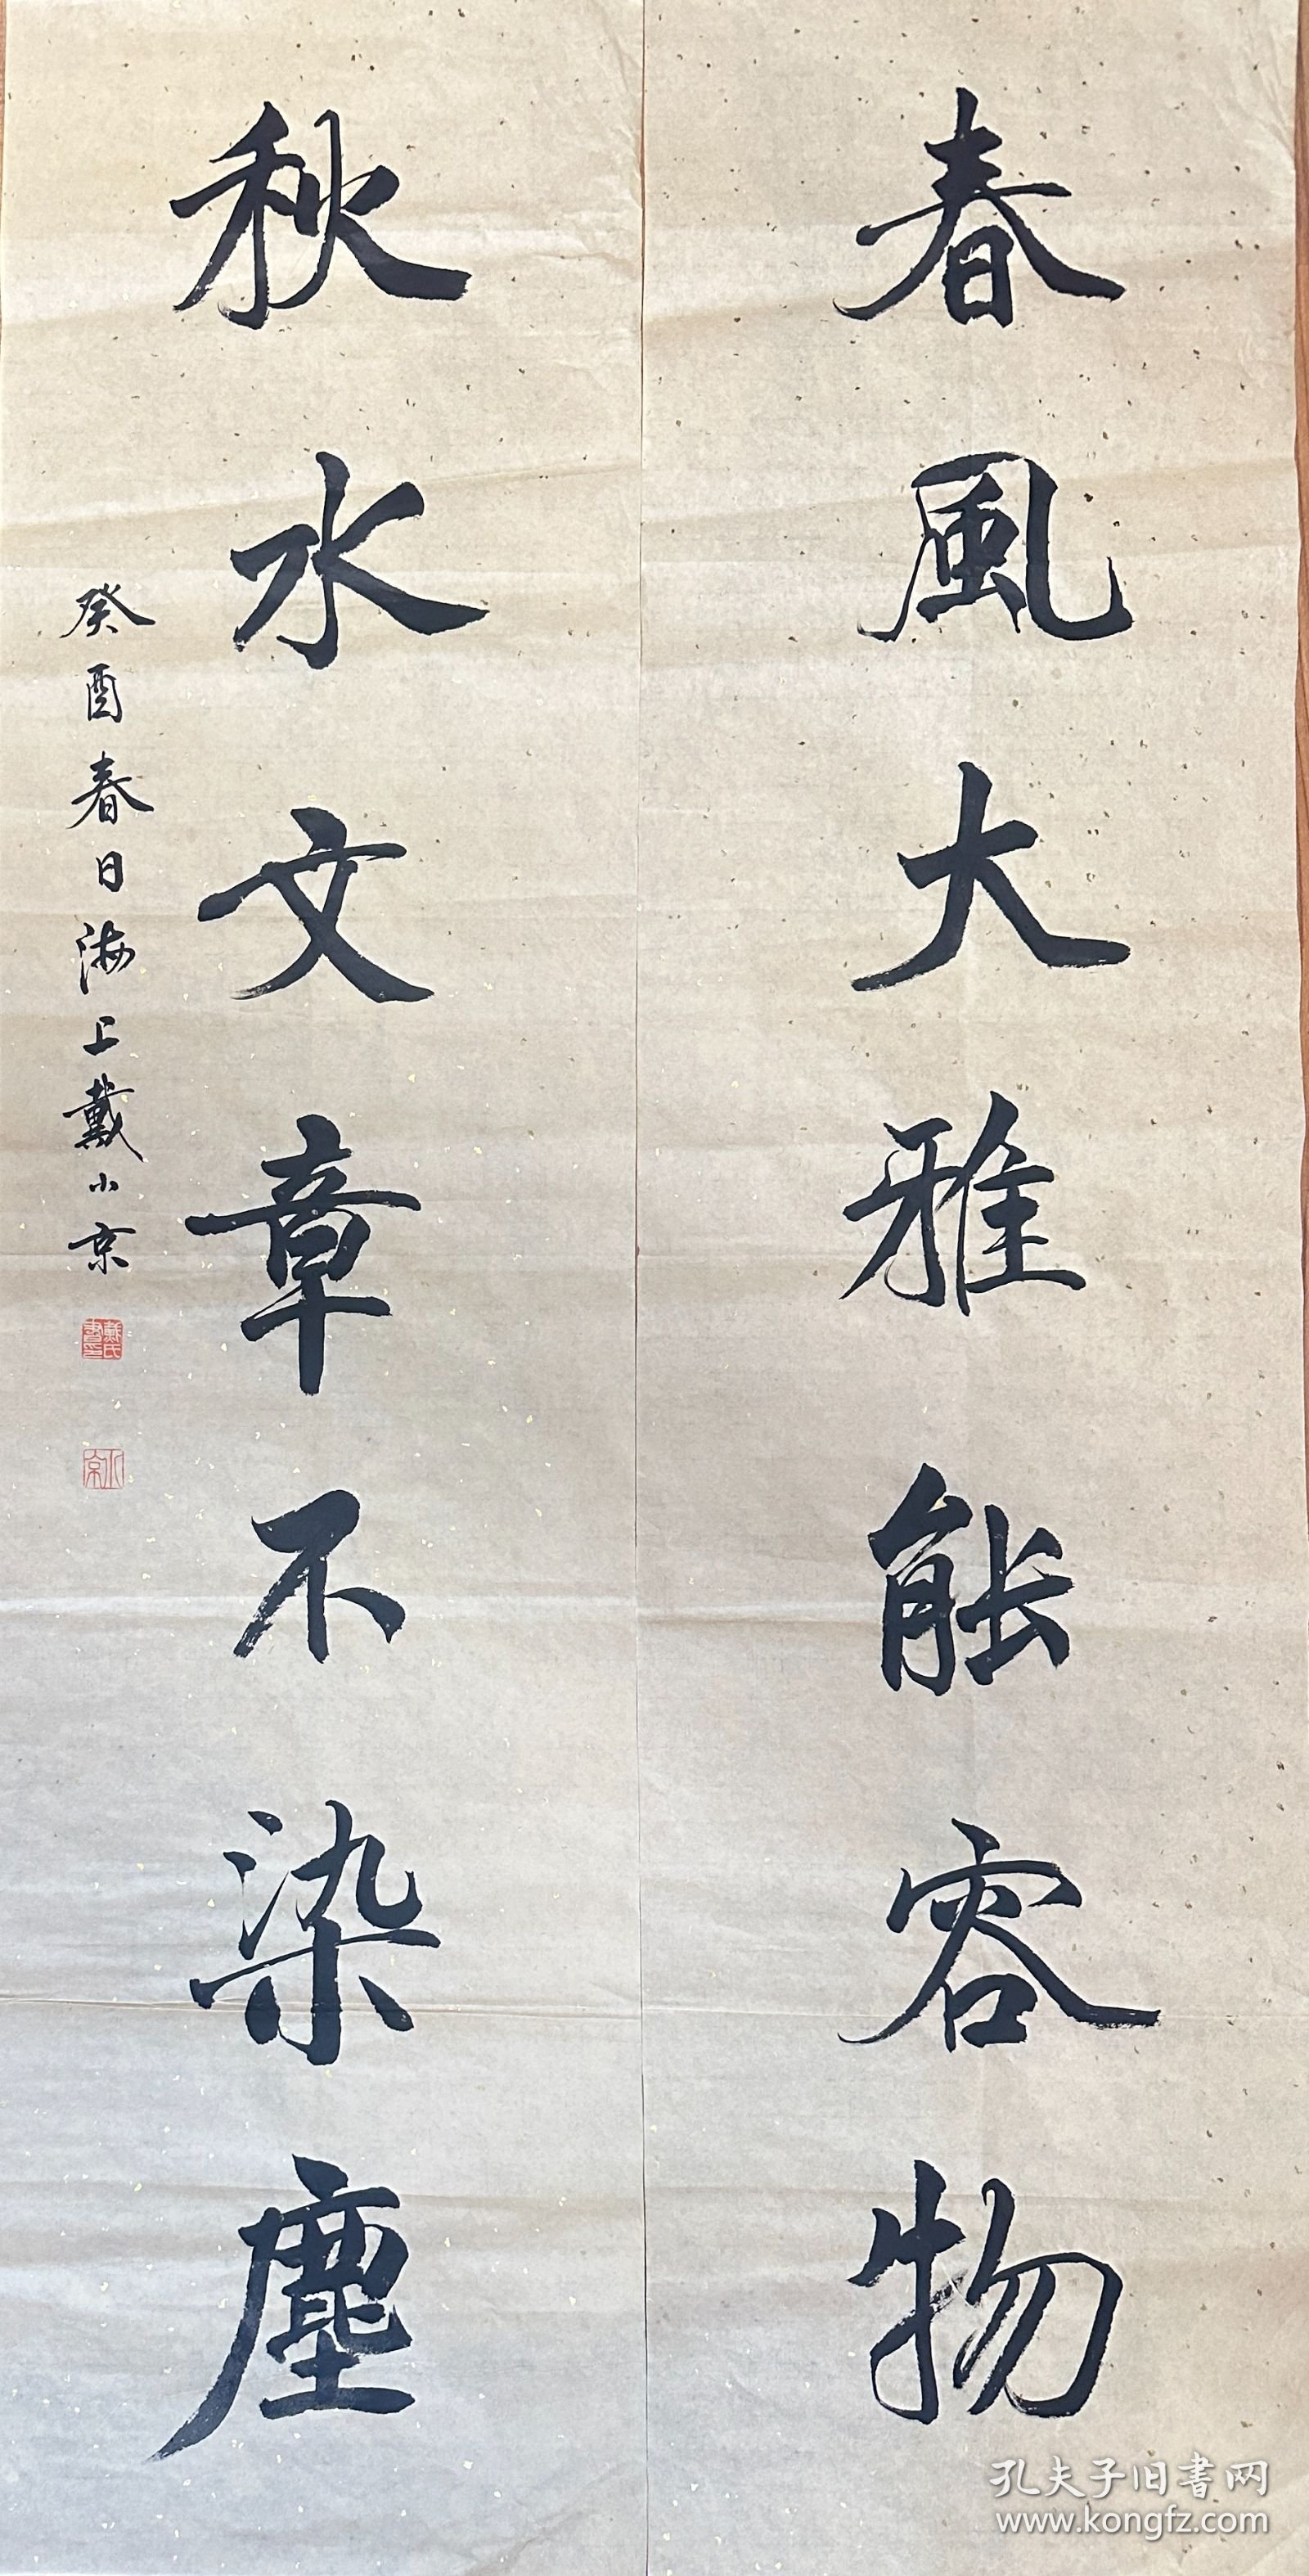 春風大雅能容物
秋水文章不染塵
癸酉春日海上戴小京
戴氏書印
小京
孔夫子旧書网
www.kongfz.com